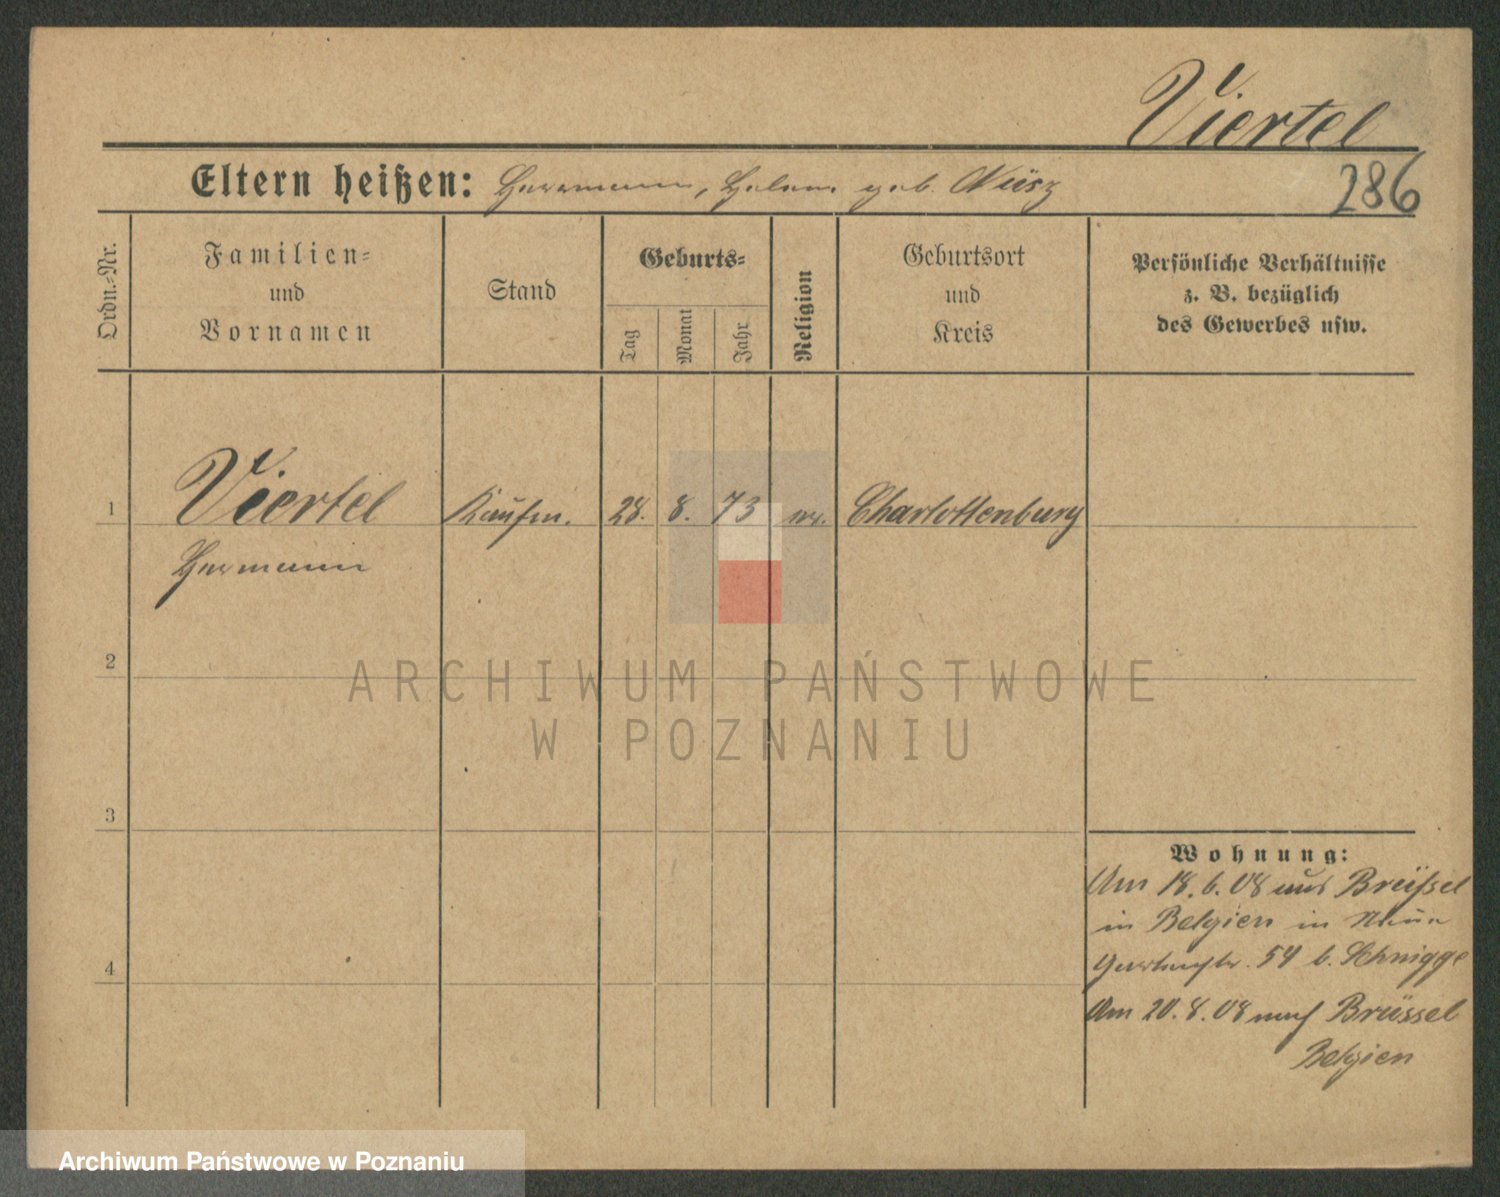 Viertel
286
Eltern heißen: Herrmann, Helene geb. Nüsz
Ordn.-Nr.
Familien-
und
Vornamen
Stand
Geburts-
Tag
Monat
Jahr
Religion
Geburtsort
und
Kreis
Persönliche Verhältnisse
z. B. bezüglich
des Gewerbes usw.
1
Viertel Kaufm. 28. 8. 73 Charlottenburg
Hermann
2
ARCHIWUM PAŃSTWOWE
W POZNANIU
3
Wohnung:
Am 18. 6. 08 aus Breüssel
in Belgien in Neue
Gartenstr. 54 b. Schnigge
4
Am 20. 8. 08 nach Brüssel
Belgien
Archiwum Państwowe w Poznaniu